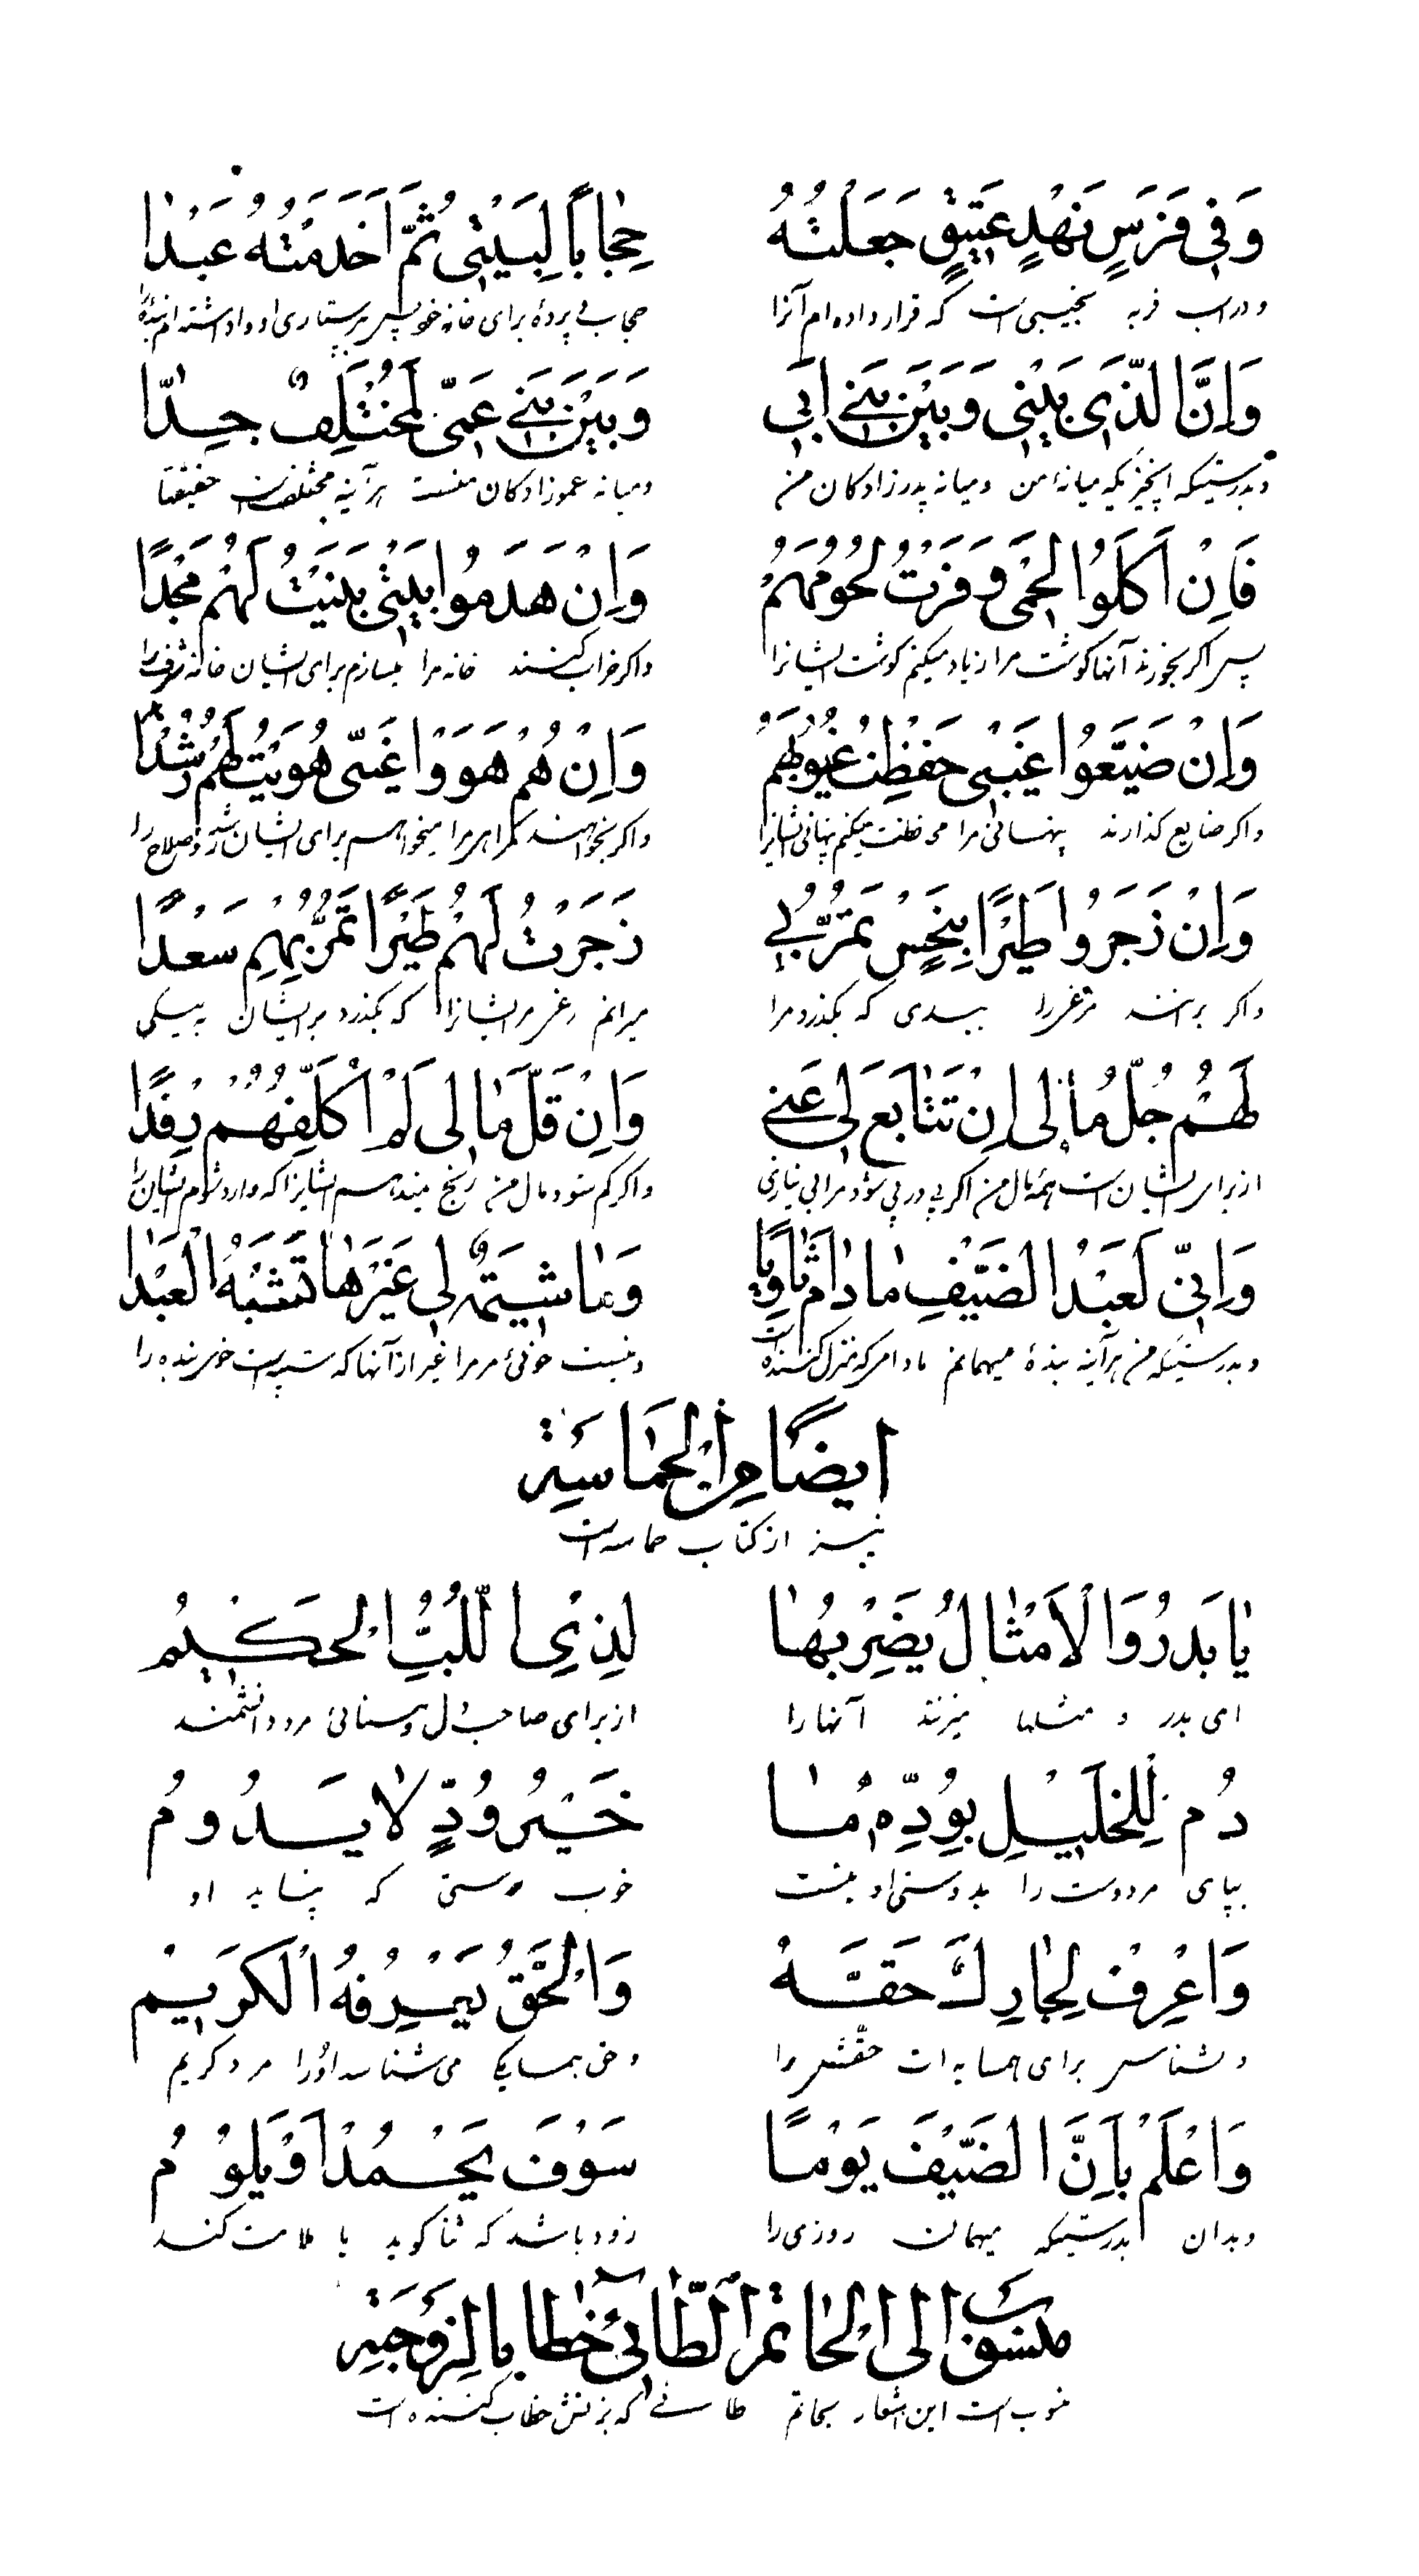 وَفِي فَرَسٍ نَهْدٍ عَتِيقٍ جَعَلْتُهُ حِجَابًا لِبَيْتِي ثُمَّ اَخْدَمْتُهُ عَبْدًا
و در اسب فربه نجیبی است که قرار داده ام آنرا حجاب و پردهٔ برای خانه خود پس پرستاری او واداشته ام بنده را
وَاِنَّ الَّذِي بَيْنِي وَبَيْنَ بَنِي اَبِي وَبَيْنَ بَنِي عَمِّي لَمُخْتَلِفٌ جِدًّا
و بدرستیکه آنچیزیکه میانه من و میانه پدرزادکان من و میانه عموزادکان منست هر آینه مختلف است حقیقتا
فَاِنْ اَكَلُوا لَحْمِي وَفَرْتُ لُحُومَهُمْ وَاِنْ هَدَمُوا بَيْتِي بَنَيْتُ لَهُمْ مَجْدًا
پس اکر بخورند آنها کوشت مرا زیاد میکنم کوشت ایشانرا و اکر خراب کنند خانه مرا میسازم برای ایشان خانه شرف را
وَاِنْ ضَيَّعُوا غَيْبِي حَفِظْتُ غُيُوبَهُمْ وَاِنْ هُمْ هَوَوْا غَيِّي هَوِيتُ لَهُمْ رُشْدًا
و اکر ضایع کذارند پنهانی مرا محافظت میکنم پنهانی ایشانرا و اکر بخواهند کمراهی مرا میخواهم برای ایشان رشد و صلاح را
وَاِنْ زَجَرُوا طَيْرًا بِنَحْسٍ تَمُرُّ بِي زَجَرْتُ لَهُمْ طَيْرًا تَمُرُّ بِهِمِ سَعْدًا
و اکر برانند مرغ را ببدی که بکذرد مرا میرانم مرغ مر ایشانرا که بکذرد بر ایشان به نیکی
لَهُمْ جُلُّ مَالِي اِنْ تَتَابَعَ لِي غِنًى وَاِنْ قَلَّ مَالِي لَمْ اُكَلِّفْهُمُ رِفْدًا
از برای ایشان است همهٔ مال من اکر پی در پی شود مرا بی نیازی و اکر کم شود مال من رنج نمیدهم ایشانرا که
وَاِنِّي لَعَبْدُ الضَّيْفِ مَادَامَ ثَاوِيًا وَمَا شِيمَةٌ لِي غَيْرَهَا تُشْبِهُ الْعَبْدَا
و بدرستیکه من هر آینه بندهٔ میهمانم مادامکه منزل کننده است و نیست خوئی مر مرا غیر از آنها که شبیه است خوی بنده را
اَيْضًا مِنَ الْحَمَاسَةِ
نیز از کتاب حماسه است
يَا بَدْرُ وَالْاَمْثَالُ يَضْرِبُهَا لِذِي اللُّبِّ الْحَكِيمُ
ای بدر و مثلها میزند آنها را از برای صاحب دل و دانائی مرد دانشمند
دُمْ لِلْخَلِيلِ بِوُدِّهِ مَا خَيْرُ وُدٍّ لَا يَدُومُ
بپای مر دوست را بدوستی او نیست خوب دوستی که نپاید او
وَاعْرِفْ لِجَارِكَ حَقَّهُ وَالْحَقُّ يَعْرِفُهُ الْكَرِيمُ
و بشناس برای همسایه ات حقش را و حق همسایکی می شناسد او را مرد کریم
وَاعْلَمْ بِاَنَّ الضَّيْفَ يَوْمًا سَوْفَ يَحْمَدُ اَوْ يَلُومُ
و بدان بدرستیکه میهمان روزی را زود باشد که ثنا کوید یا ملامت کند
مَنْسُوبٌ اِلَى الْحَاتَمِ الطَّائِيِّ خِطَابًا لِزَوْجَتِهِ
منسوب است این اشعار بحاتم طائی که بزنش خطاب کننده است